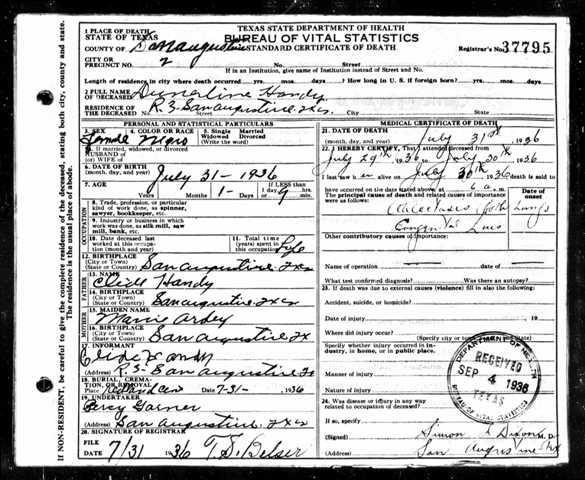 TEXAS STATE DEPARTMENT OF HEALTH
BUREAU OF VITAL STATISTICS
STANDARD CERTIFICATE OF DEATH
Registrar's No. 37795
1 PLACE OF DEATH
STATE OF TEXAS
COUNTY OF San Augustine
CITY OR PRECINCT NO. 2 No. Street
If in an Institution, give name of Institution instead of Street and No.
Length of residence in city where death occurred yrs. mos. days. How long in U. S. if foreign born? yrs. mos. days
2 FULL NAME OF DECEASED Handy
RESIDENCE OF THE DECEASED No. R. 3. San Augustine, Txs
Street City State
PERSONAL AND STATISTICAL PARTICULARS
3. SEX 4. COLOR OR RACE Negro 5. Single Married Widowed Divorced (Write the word)
If married, widowed, or divorced HUSBAND of (or) WIFE of
6. DATE OF BIRTH (month, day, and year) July 31 - 1936
7. AGE Years Months 1 - Days If LESS than 1 day 9 hrs. min.
8. Trade, profession, or particular kind of work done, as spinner, sawyer, bookkeeper, etc.
9. Industry or business in which work was done, as silk mill, saw mill, bank, etc.
10. Date deceased last worked at this occupation (month and year)
11. Total time (years) spent in this occupation Life
12. BIRTHPLACE (City or Town) (State or Country) San augustine Txs
FATHER
13. NAME Clide Handy
14. BIRTHPLACE (City or Town) (State or Country) San augustine. Txs
MOTHER
15. MAIDEN NAME Ardey
16. BIRTHPLACE (City or Town) (State or Country) San augustine Tx
17. INFORMANT Clide Handy
(Address) R-3- San augustine Tx
18. BURIAL, CREMATION, OR REMOVAL
Place Cem Date 7-31- 1936
19. UNDERTAKER Percy Garner
(Address) San augustine. Txs
20. SIGNATURE OF REGISTRAR
FILE DATE 7/31 1936 T. S. Belser
MEDICAL CERTIFICATE OF DEATH
21. DATE OF DEATH (month, day, and year) July 31st 1936
22. I HEREBY CERTIFY, That I attended deceased from July 29th 1936 to July 30th 1936
I last saw alive on July 30th 1936 death is said to have occurred on the date stated above at 6 a. m.
The principal cause of death and related causes of importance were as follows:
Date of onset
Both Lungs
Lues
Other contributory causes of importance:
Name of operation date of
What test confirmed diagnosis? Was there an autopsy?
23. If death was due to external causes (violence) fill in also the following:
Accident, suicide, or homicide?
Date of injury 19
Where did injury occur?
(Specify city or town, county, and State)
Specify whether injury occurred in Industry, in home, or in public place.
Manner of injury
Nature of injury
24. Was disease or injury in any way related to occupation of deceased?
If so, specify
(Signed) Simon Dixon M. D.
(Address) San Augustine Tex
DEPARTMENT OF HEALTH
RECEIVED
SEP 4 1936
TEXAS
BUREAU OF VITAL STATISTICS
IF NON-RESIDENT, be careful to give the complete residence of the deceased, stating both city, county and state. The residence is the usual place of abode.